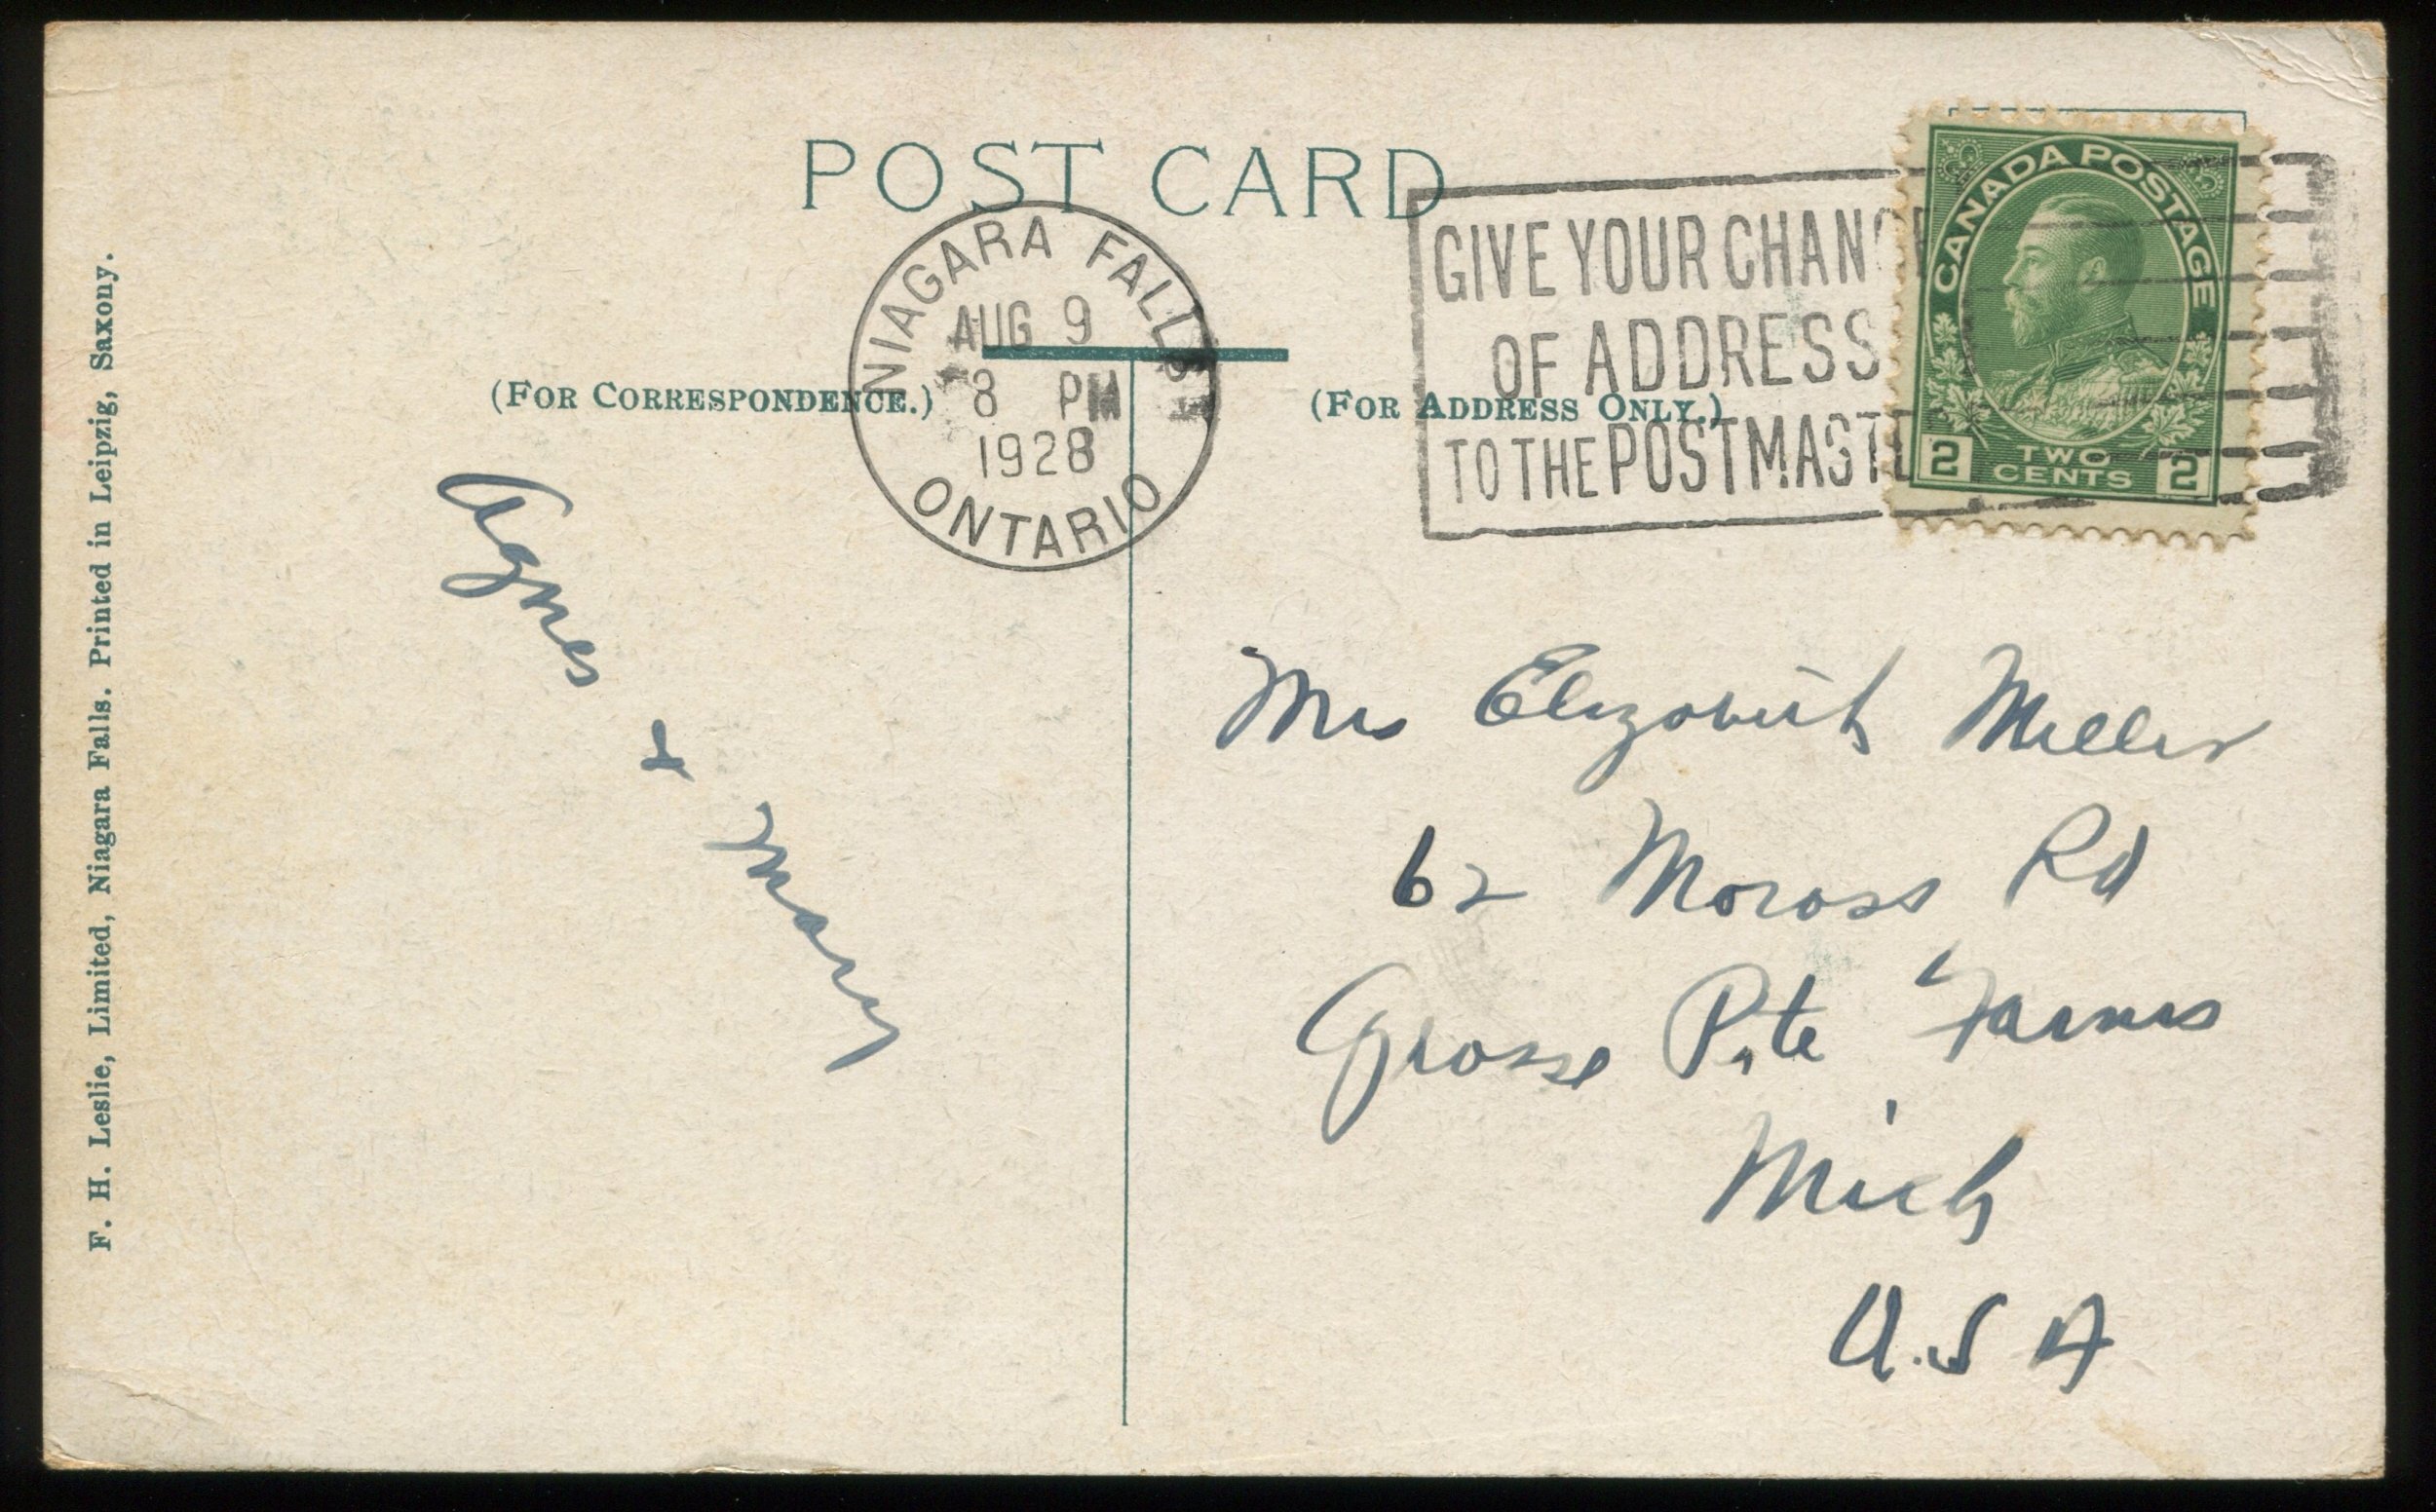 POST CARD
NIAGARA FALLS
AUG 9
8 PM
1928
ONTARIO
GIVE YOUR CHANGE
OF ADDRESS
TO THE POSTMASTE
CANADA POSTAGE
2 TWO CENTS 2
(FOR CORRESPONDENCE.)
(FOR ADDRESS ONLY.)
Agnes + Mary
Mrs Elizabeth Miller
62 Moross Rd
Grosse Pnte Farms
Mich
U.S A
F. H. Leslie, Limited, Niagara Falls. Printed in Leipzig, Saxony.